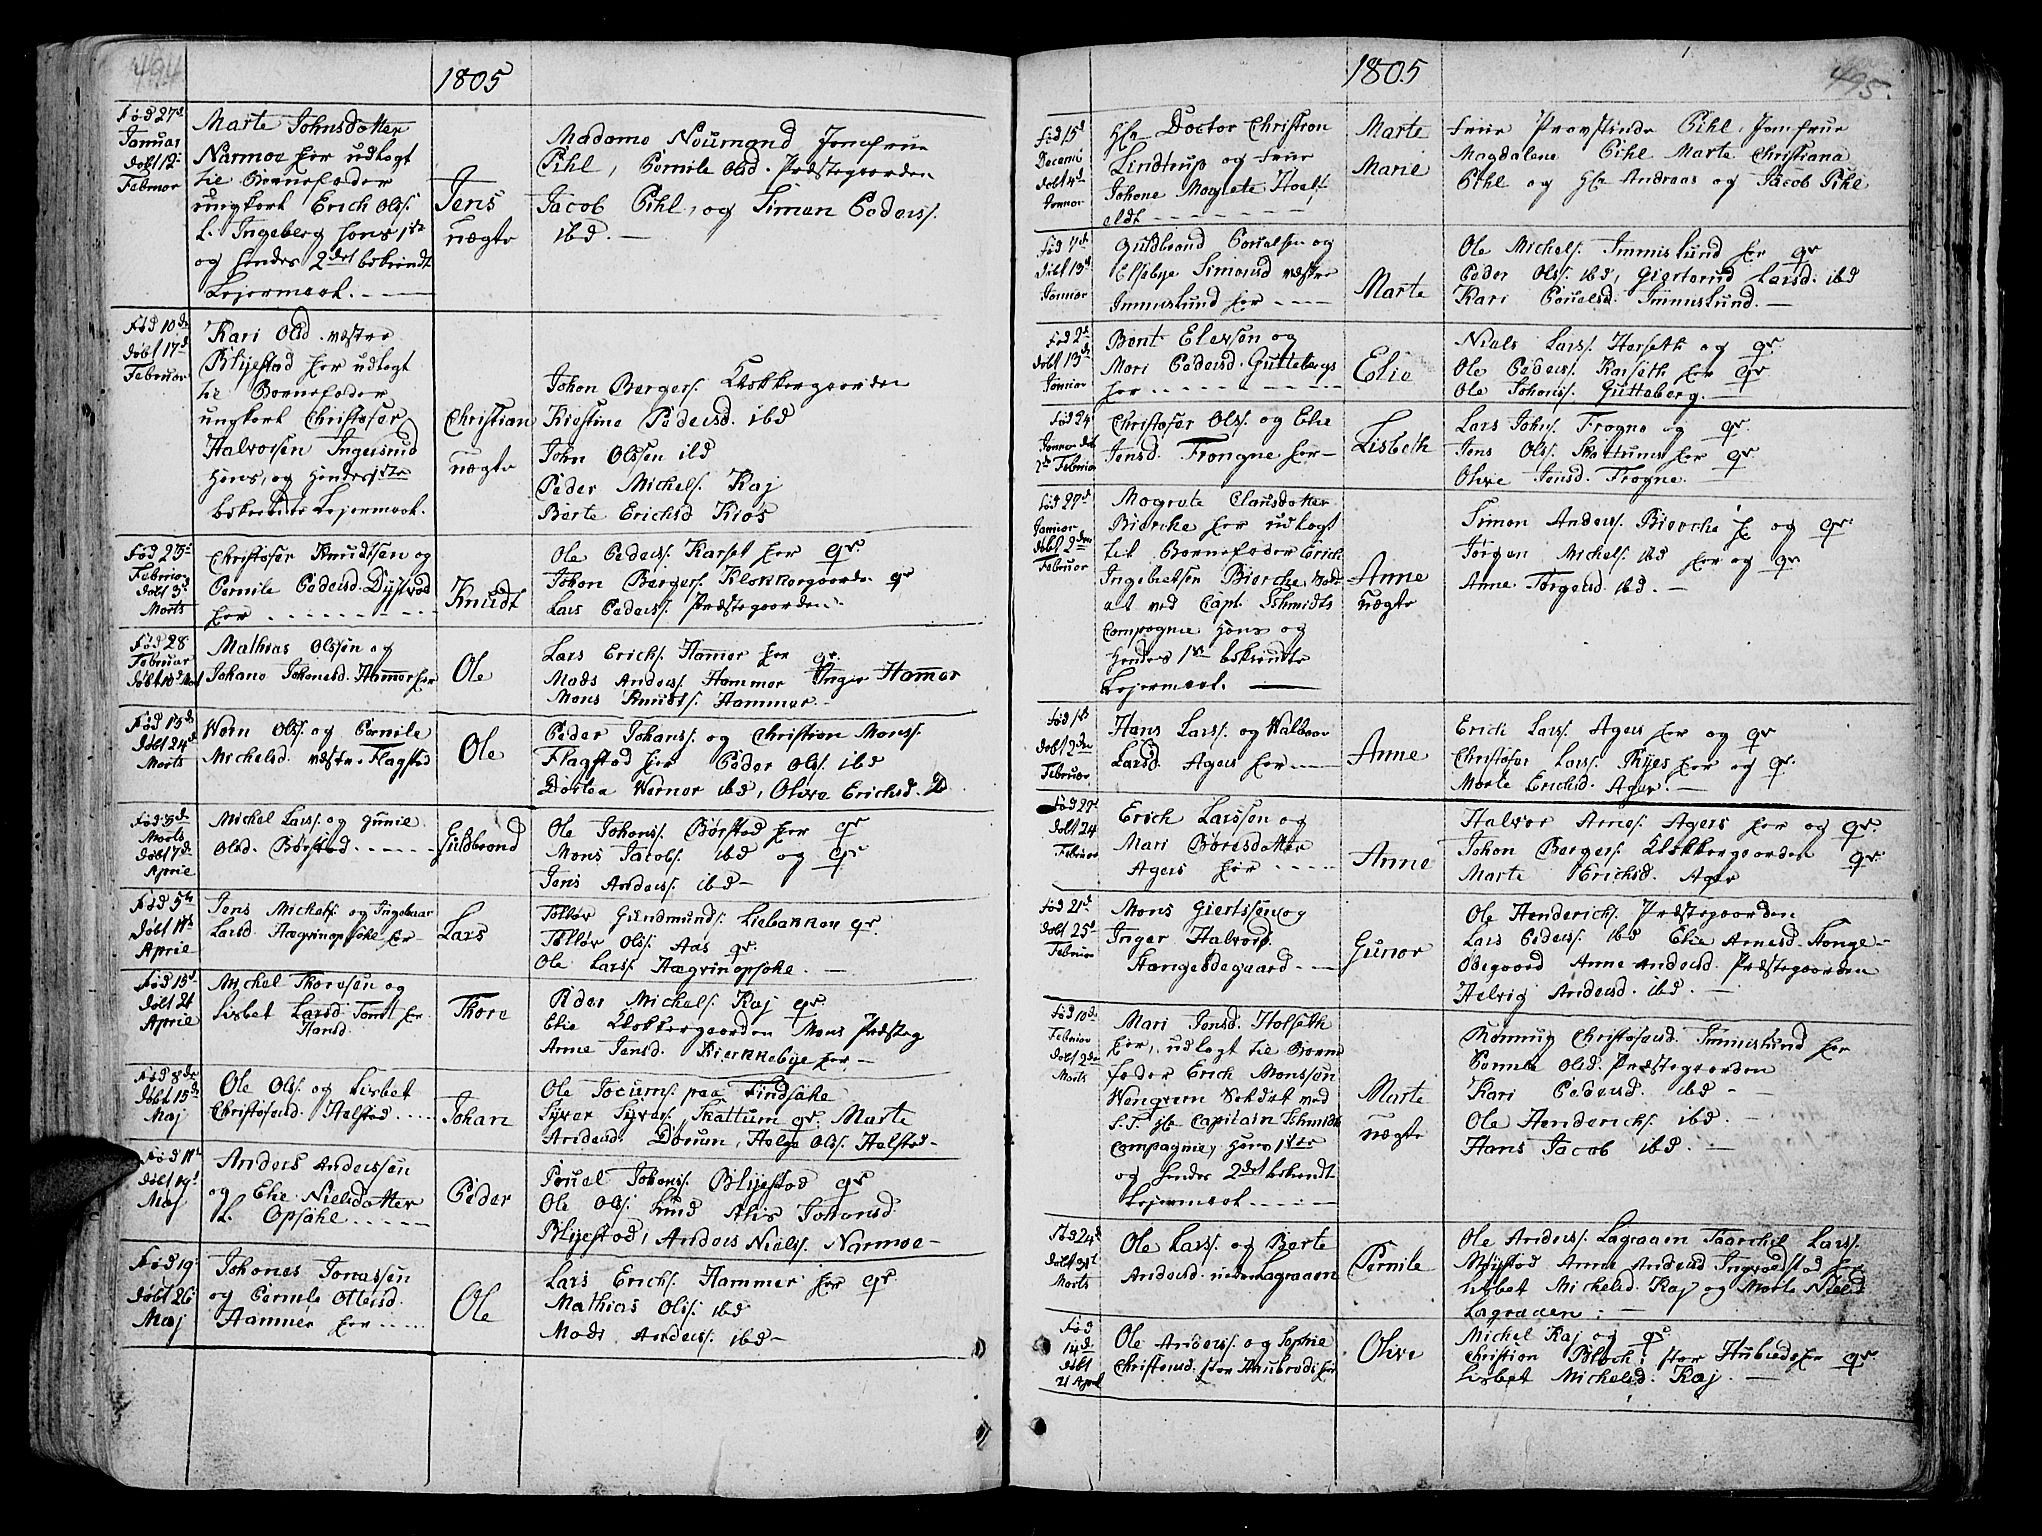 494
1805
Fød 27d
Januar
døbt 12
Februar
Marte Johnsdatter
Narmoe her udlagt
til Barnefader
ungkarl Erich Olss.
L. Ingeberg hans 1ste
og hendes 2det bekiendt
Lejermaal.
Jens
uægte
Madame Neumand Jomfrue
Pihl, Pernile Olsd. Præstegaarden
Jacob Pihl, og Simen Peders.
ibd.
Fød 10de
døbt 17d
Februar
Kari Olsd. vestre
Blystad her udlagt
til Barnefader
ungkarl Christofer
Halvorsen Ingersrud
Hans, og Hendes 1ste
bekiendte Lejermaal.
Christian
uægte
Johan Bergers. Klokkergaarden
Kiestine Pedersd. ibd
John Olssen ibd
Peder Michels. Kaj
Berte Erichsd Kios
Fød 23d
Februar
døbt 3d
Marts
Christofer Knudtsen og
Pernile Pedersd. Dystvad
her
Knudt
Ole Peders. Karset her qr.
Johan Bergers. Klokkergaarden qr
Lars Peders. Præstegaarden.
Fød 28
Februar
døbt 10d Mart
Mathias Olssen og
Johane Johanesd. Hammer her
Ole
Lars Erichs. Hammer her qr.
Mads Anders. Hammer Inger Hamer
Mons Knudts. Hammer
Fød 13de
døbt 24d
Marts
Wern Olss. og Pernile
Michelsd. vestre Flagstad
Ole
Peder Johans. og Christian Mons.
Flagstad her Peder Olss. ibd
Dortea Werner ibd, Oliva Erichsd.
Fød 3de
Marts
døbt 7de
Aprile
Michel Larss. og Gunil
Olsd. Børstad
Guldbrand
Ole Johans. Børstad her qr
Mons Jacobs. ibd og qr.
Jens Anders. ibd
Fød 5te
døbt 14d
Aprile
Jens Michels. og Ingebaar
Larsd. Hægrinopsahl her
Lars
Tollør Gundmunds. Liebakken qr.
Tollør Olss. Aas qr.
Ole Larss. Hægrinopsahl.
Fød 15d
døbt 21
Aprile
Michel Thoresen og
Lisbet Larsd. Tomt her
Hansd.
Thore
Peder Michels. Kaj qr.
Elie Klokkergaarden Mons Præsteg
Anne Jensd. Kierkkebye her
Fød 8de
døbt 15de
Maj
Ole Olss. og Lisbet
Christofersd. Halstad
Johan
Ole Jocums. paa Findsahl
Syver Syvers. Skattum qr. Marte
Andersd. Dørum, Helge Olss. Halstad
Fød 11te
døbt 19d
Maj
Anders Anderssen
og Elie Nielsdatter
L. Opsahl
Peder
Pouel Johans. Blyestad qr
Ole Olss. Lund Alis Johansd
Blyestad, Anders Niels. Narmoe
Fød 19
døbt 26
Maj
Johanes Jonassen
og Pernile Ottersd.
Hammer her
Ole
Lars Erichs. Hammer her qr.
Mathias Olss. ibd
Mads Anders. ibd
1805
495.
Fød 15d
Decem.
døbt 4d
Januar
Hr. Doctor Christian
Lindtrup og Frue
Johane Magrete Hoelf
eldt
Marte
Marie
Frue Provstinde Pihl, Jomfrue
Magdalene Pihl Marte Christiana
Pihl og Hr. Andreas og Jacob Pihl
Fød 7de
døbt 13d
Januar
Guldbrand Pouelsen og
Elsebye Simensd vestre
Immislund her
Marte
Ole Michels. Immislund her qr
Peder Olss. ibd, Giertrud Larsd. ibd
Kari Pouelsd. Immislund.
Fød 2d
døbt 13de
Januar
Bent Elevsen og
Mari Pedersd. Gutteberg
her
Elie
Niels Larss. Harseth og qr.
Ole Peders. Karseth her qr
Ole Johans. Gutteberg.
Fød 24
Januar døb
2de Februar
Christofer Olss. og Elie
Jensd. Frongne her
Lisbeth
Lars Johs. Frogne og qr.
Jens Olss. Skattum her qr.
Olive Jensd. Frogne
Fød 27d
Januar
døbt 2den
Februar
Magrete Clausdatter
Biercke her udlagt
til Barnefader Erich
Ingebretsen Biercke, sold
at ved Capt. Schmidts
Compagnie Hans og
Hendes 1ste bekiendte
Lejermaal.
Anne
uægte
Simon Anders. Biercke her og qr.
Jørgen Michels. ibd her og qr.
Anne Torgersd. ibd.
Fød 1ste
døbt 2den
Februar
Hans Larss. og Walboer
Larsd. Agers her
Anne
Erich Larss. Ager her og qr
Christofer Larss. Thyes her og qr.
Marte Erichsd. Ager.
Fød 27d
døbt 24
Februar
Erich Larssen og
Mari Børesdatter
Agers her
Anne
Halvor Arnes. Agers her og qr.
Johan Bergers. Klokkergaarden qr.
Marte Erichsd. Ager
Fød 21d
døbt 25d
Februar
Mons Giertssen og
Inger Halvorsd.
Stangesdegaard
Gunor
Ole Henderichs. Præstegaarden
Lars Peders. ibd Elie Arnesd. Stange
Ødegaard Anne Andersd. Præstegaarden
Helvig Andersd. ibd.
Fød 10de
Februar
døbt 2de
Marts
Mari Jensd. Holseth
her, udlagt til Barne
fader Erich Monssen
Wengrum Soldat ved
S.T. Hr. Capitain Schmidts
Compagnie, Hans 1ste
og hendes 2det bekiendt
Lejermaal
Marte
uægte
Rønnug Christofersd. Immislund her
Pernile Olsd. Præstegaarden
Kari Pedersd. ibd
Ole Henderichs. ibd.
Hans Jacob ibd.
Fød 24d
døbt 31d
Marts
Ole Larss. og Berte
Andersd. neder Lagraaen
Pernile
Ole Anders. Lagraaen Taarchil Larss.
Myhstad Anne Andersd Ingvoldstad her
Lisbet Michelsd. Kaj og Marte Nielsd
Lagraaen
Fød
14de
døbt
21 April
Ole Anders. og Sophie
Christensd. stor Huusbrodi her
Olive
Michel Kaj og qr
Christian Bloch, stor Huusbroden her qr.
Lisbet Michelsd. Kaj